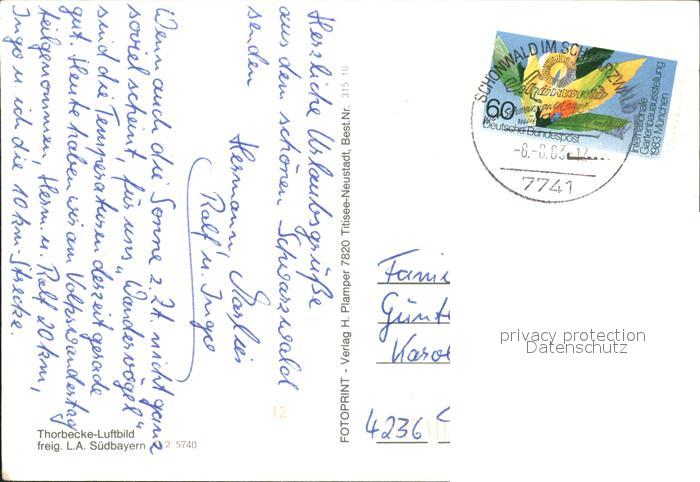 Herzliche Urlaubsgrüße
aus dem schönen Schwarzwald
senden
Hermann, Marlies
Ralf u. Ingo
Wenn auch die Sonne z. Zt. nicht ganz
soviel scheint, für uns „Wandervögel"
sind die Temperaturen derzeit gerade
gut. Heute haben wir am Volkswandertag
teilgenommen, Herm. u. Ralf 20 km,
Ingo u. ich die 10 km-Strecke.
Thorbecke-Luftbild
freig. L.A. Südbayern
2 5740
12
FOTOPRINT - Verlag H. Plamper 7820 Titisee-Neustadt, Best.Nr. 315 10
SCHÖNWALD IM SCHWARZW
60
Deutsche Bundespost
Internationale
Gartenbauausstellung
1983 München
-8.-8.83.-14
7741
Fami
Günt
Karol
4236
privacy protection
Datenschutz